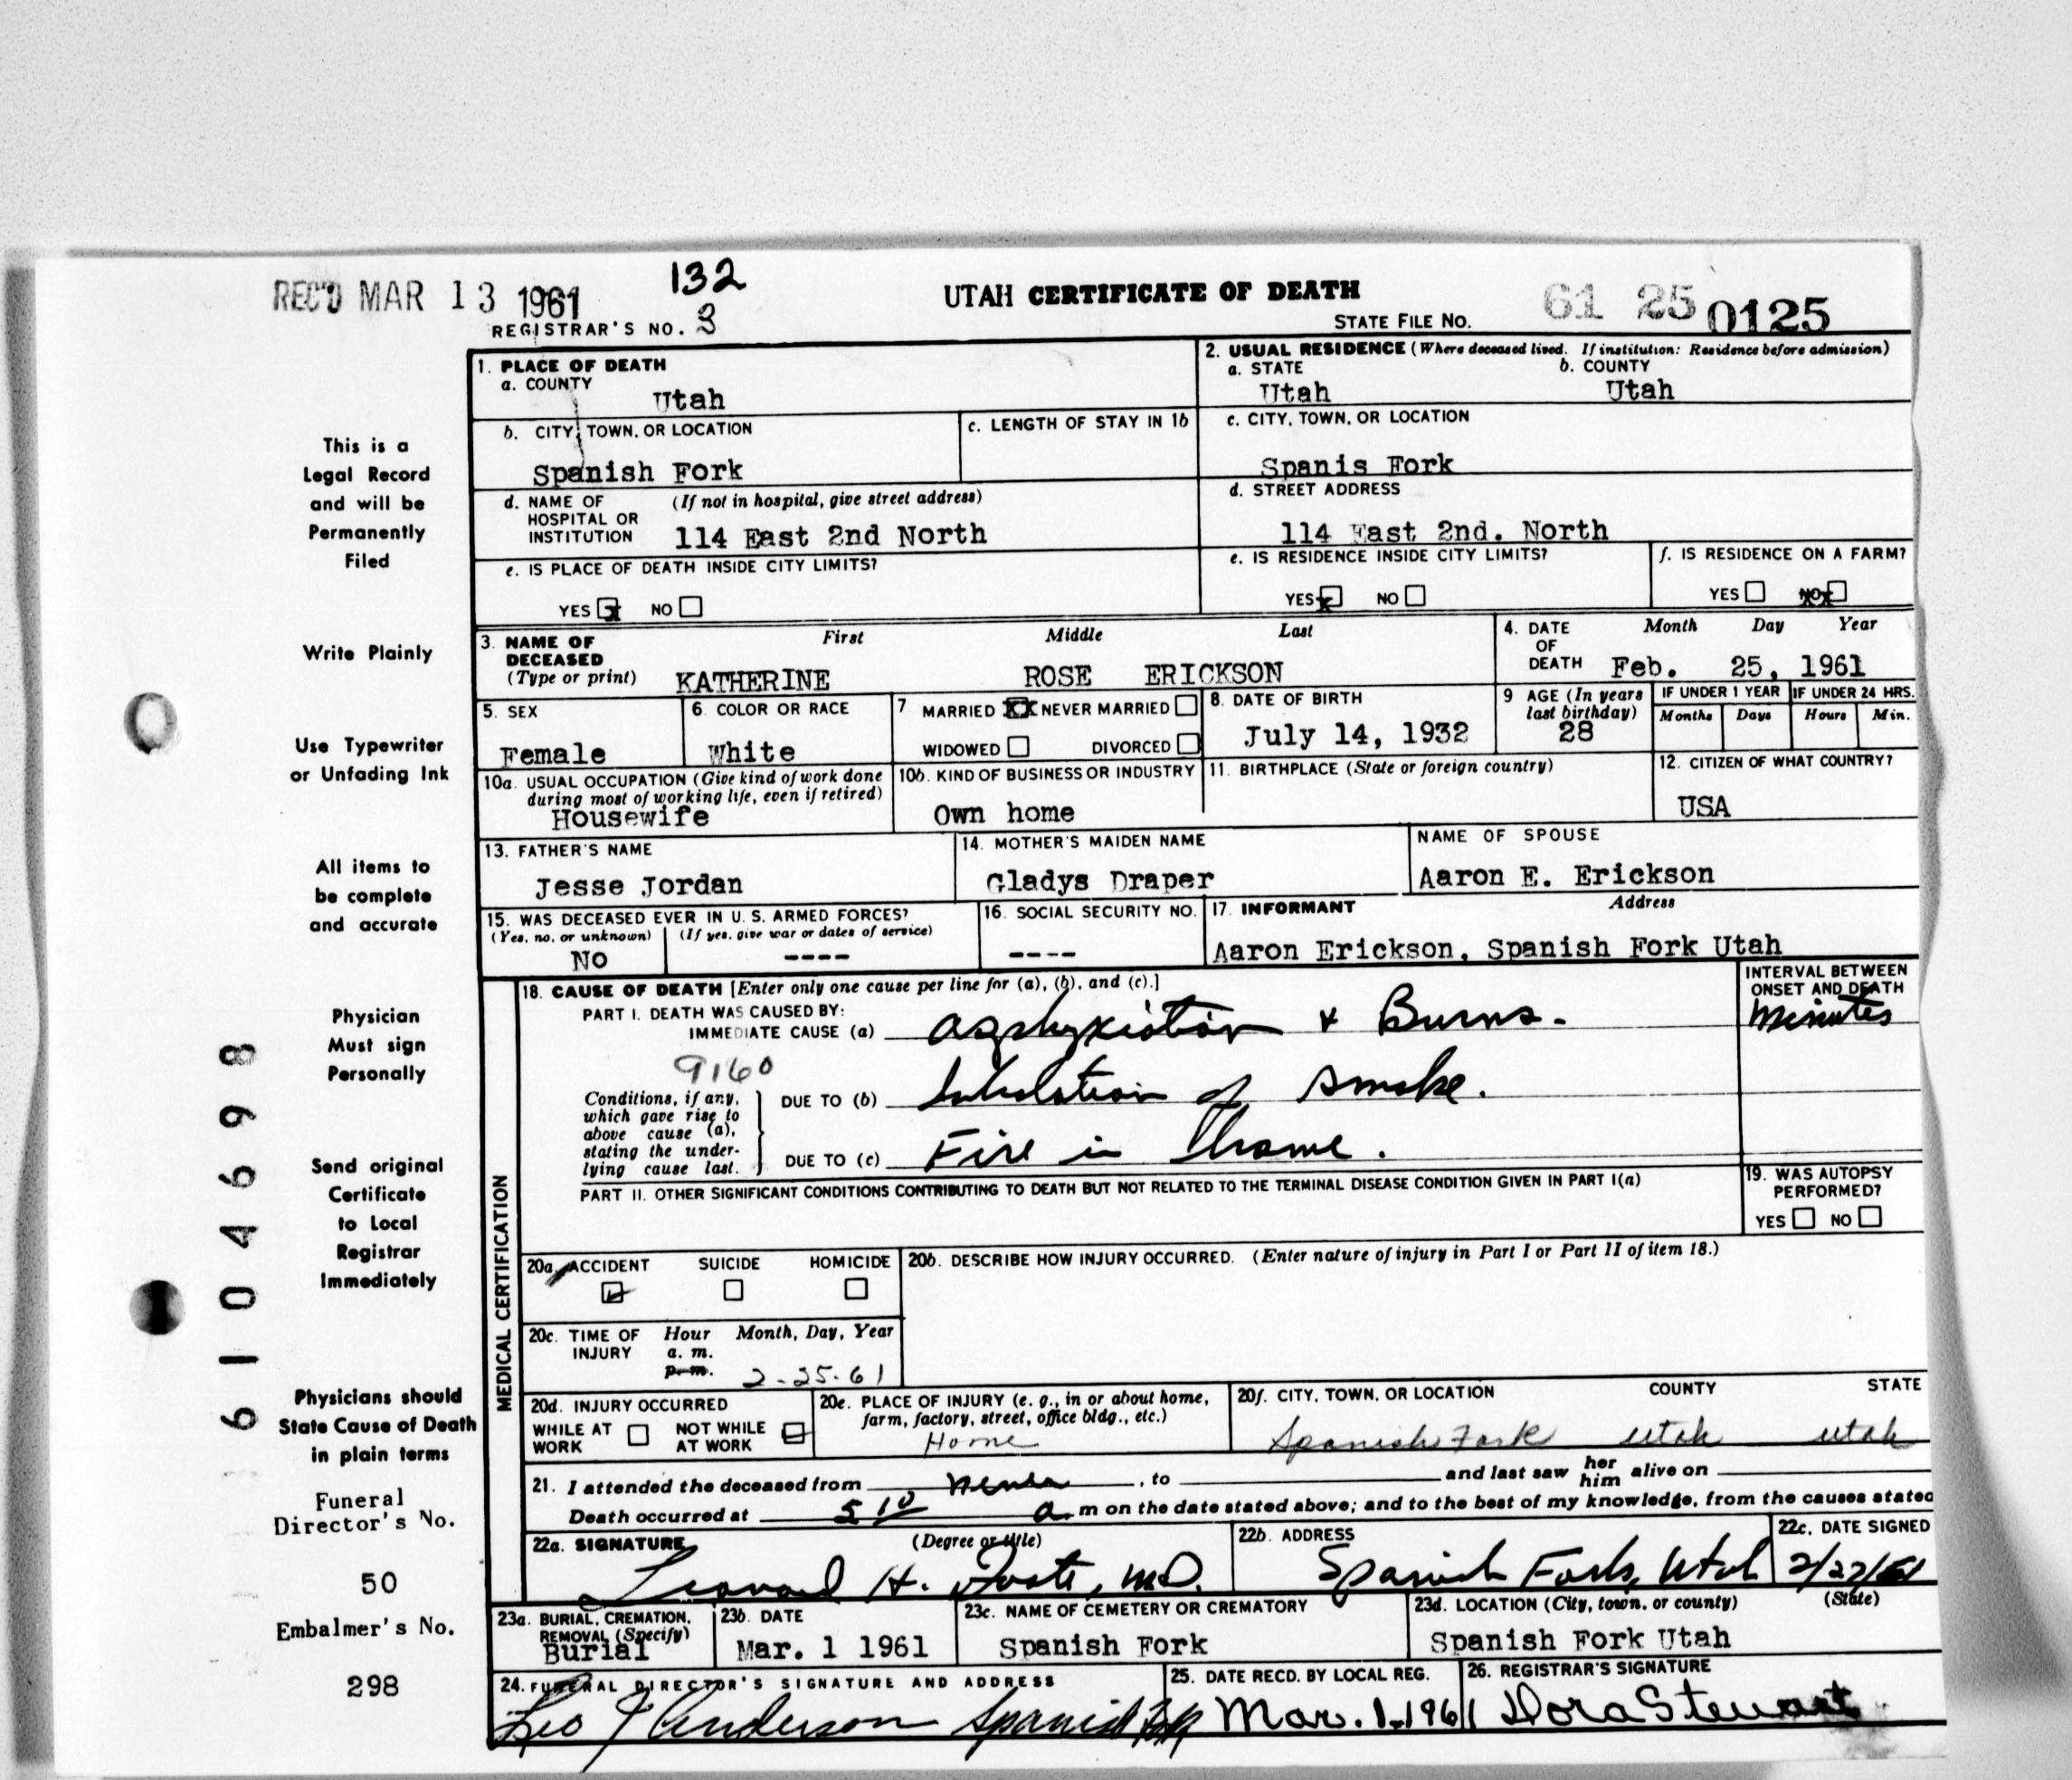 REC'D MAR 13 1961
132
UTAH CERTIFICATE OF DEATH
61 25 0125
REGISTRAR'S NO. 3
STATE FILE NO.
1. PLACE OF DEATH
a. COUNTY
Utah
2. USUAL RESIDENCE (Where deceased lived. If institution: Residence before admission)
a. STATE b. COUNTY
Utah Utah
b. CITY, TOWN, OR LOCATION
Spanish Fork
c. LENGTH OF STAY IN 1b
c. CITY, TOWN, OR LOCATION
Spanis Fork
d. NAME OF HOSPITAL OR INSTITUTION
(If not in hospital, give street address)
114 East 2nd North
d. STREET ADDRESS
114 East 2nd. North
e. IS PLACE OF DEATH INSIDE CITY LIMITS?
YES x NO
e. IS RESIDENCE INSIDE CITY LIMITS?
YES x NO
f. IS RESIDENCE ON A FARM?
YES NO
3. NAME OF DECEASED
(Type or print)
First Middle Last
KATHERINE ROSE ERICKSON
4. DATE OF DEATH
Month Day Year
Feb. 25, 1961
5. SEX
Female
6. COLOR OR RACE
White
7. MARRIED XX NEVER MARRIED
WIDOWED DIVORCED
8. DATE OF BIRTH
July 14, 1932
9 AGE (In years last birthday)
28
IF UNDER 1 YEAR
Months Days
IF UNDER 24 HRS.
Hours Min.
10a. USUAL OCCUPATION (Give kind of work done during most of working life, even if retired)
Housewife
10b. KIND OF BUSINESS OR INDUSTRY
Own home
11. BIRTHPLACE (State or foreign country)
12. CITIZEN OF WHAT COUNTRY?
USA
13. FATHER'S NAME
Jesse Jordan
14. MOTHER'S MAIDEN NAME
Gladys Draper
NAME OF SPOUSE
Aaron E. Erickson
15. WAS DECEASED EVER IN U. S. ARMED FORCES?
(Yes, no, or unknown) (If yes, give war or dates of service)
No ----
16. SOCIAL SECURITY NO.
----
17. INFORMANT Address
Aaron Erickson, Spanish Fork Utah
MEDICAL CERTIFICATION
18. CAUSE OF DEATH [Enter only one cause per line for (a), (b), and (c).]
PART I. DEATH WAS CAUSED BY:
IMMEDIATE CAUSE (a) Asphyxiation & Burns.
INTERVAL BETWEEN ONSET AND DEATH
Minutes
9160
Conditions, if any, which gave rise to above cause (a), stating the underlying cause last.
DUE TO (b) Inhalation of smoke.
DUE TO (c) Fire in home.
PART II. OTHER SIGNIFICANT CONDITIONS CONTRIBUTING TO DEATH BUT NOT RELATED TO THE TERMINAL DISEASE CONDITION GIVEN IN PART I(a)
19. WAS AUTOPSY PERFORMED?
YES NO
20a. ACCIDENT SUICIDE HOMICIDE
20b. DESCRIBE HOW INJURY OCCURRED. (Enter nature of injury in Part I or Part II of item 18.)
20c. TIME OF INJURY
Hour Month, Day, Year
a. m.
p. m. 2-25-61
20d. INJURY OCCURRED
WHILE AT WORK NOT WHILE AT WORK
20e. PLACE OF INJURY (e. g., in or about home, farm, factory, street, office bldg., etc.)
Home
20f. CITY, TOWN, OR LOCATION COUNTY STATE
Spanish Fork Utah Utah
21. I attended the deceased from never, to and last saw her him alive on
Death occurred at 5 10 a. m on the date stated above; and to the best of my knowledge, from the causes stated
22a. SIGNATURE (Degree or title)
Leonard H. M.D.
22b. ADDRESS
Spanish Fork, Utah
22c. DATE SIGNED
2/27/61
23a. BURIAL, CREMATION, REMOVAL (Specify)
Burial
23b. DATE
Mar. 1 1961
23c. NAME OF CEMETERY OR CREMATORY
Spanish Fork
23d. LOCATION (City, town, or county) (State)
Spanish Fork Utah
24. FUNERAL DIRECTOR'S SIGNATURE AND ADDRESS
Leo J Anderson Spanish Fork
25. DATE RECD. BY LOCAL REG.
Mar. 1, 1961
26. REGISTRAR'S SIGNATURE
Dora Stewart
This is a
Legal Record
and will be
Permanently
Filed
Write Plainly
Use Typewriter
or Unfading Ink
All items to
be complete
and accurate
Physician
Must sign
Personally
Send original
Certificate
to Local
Registrar
Immediately
Physicians should
State Cause of Death
in plain terms
Funeral
Director's No.
50
Embalmer's No.
298
61 04698